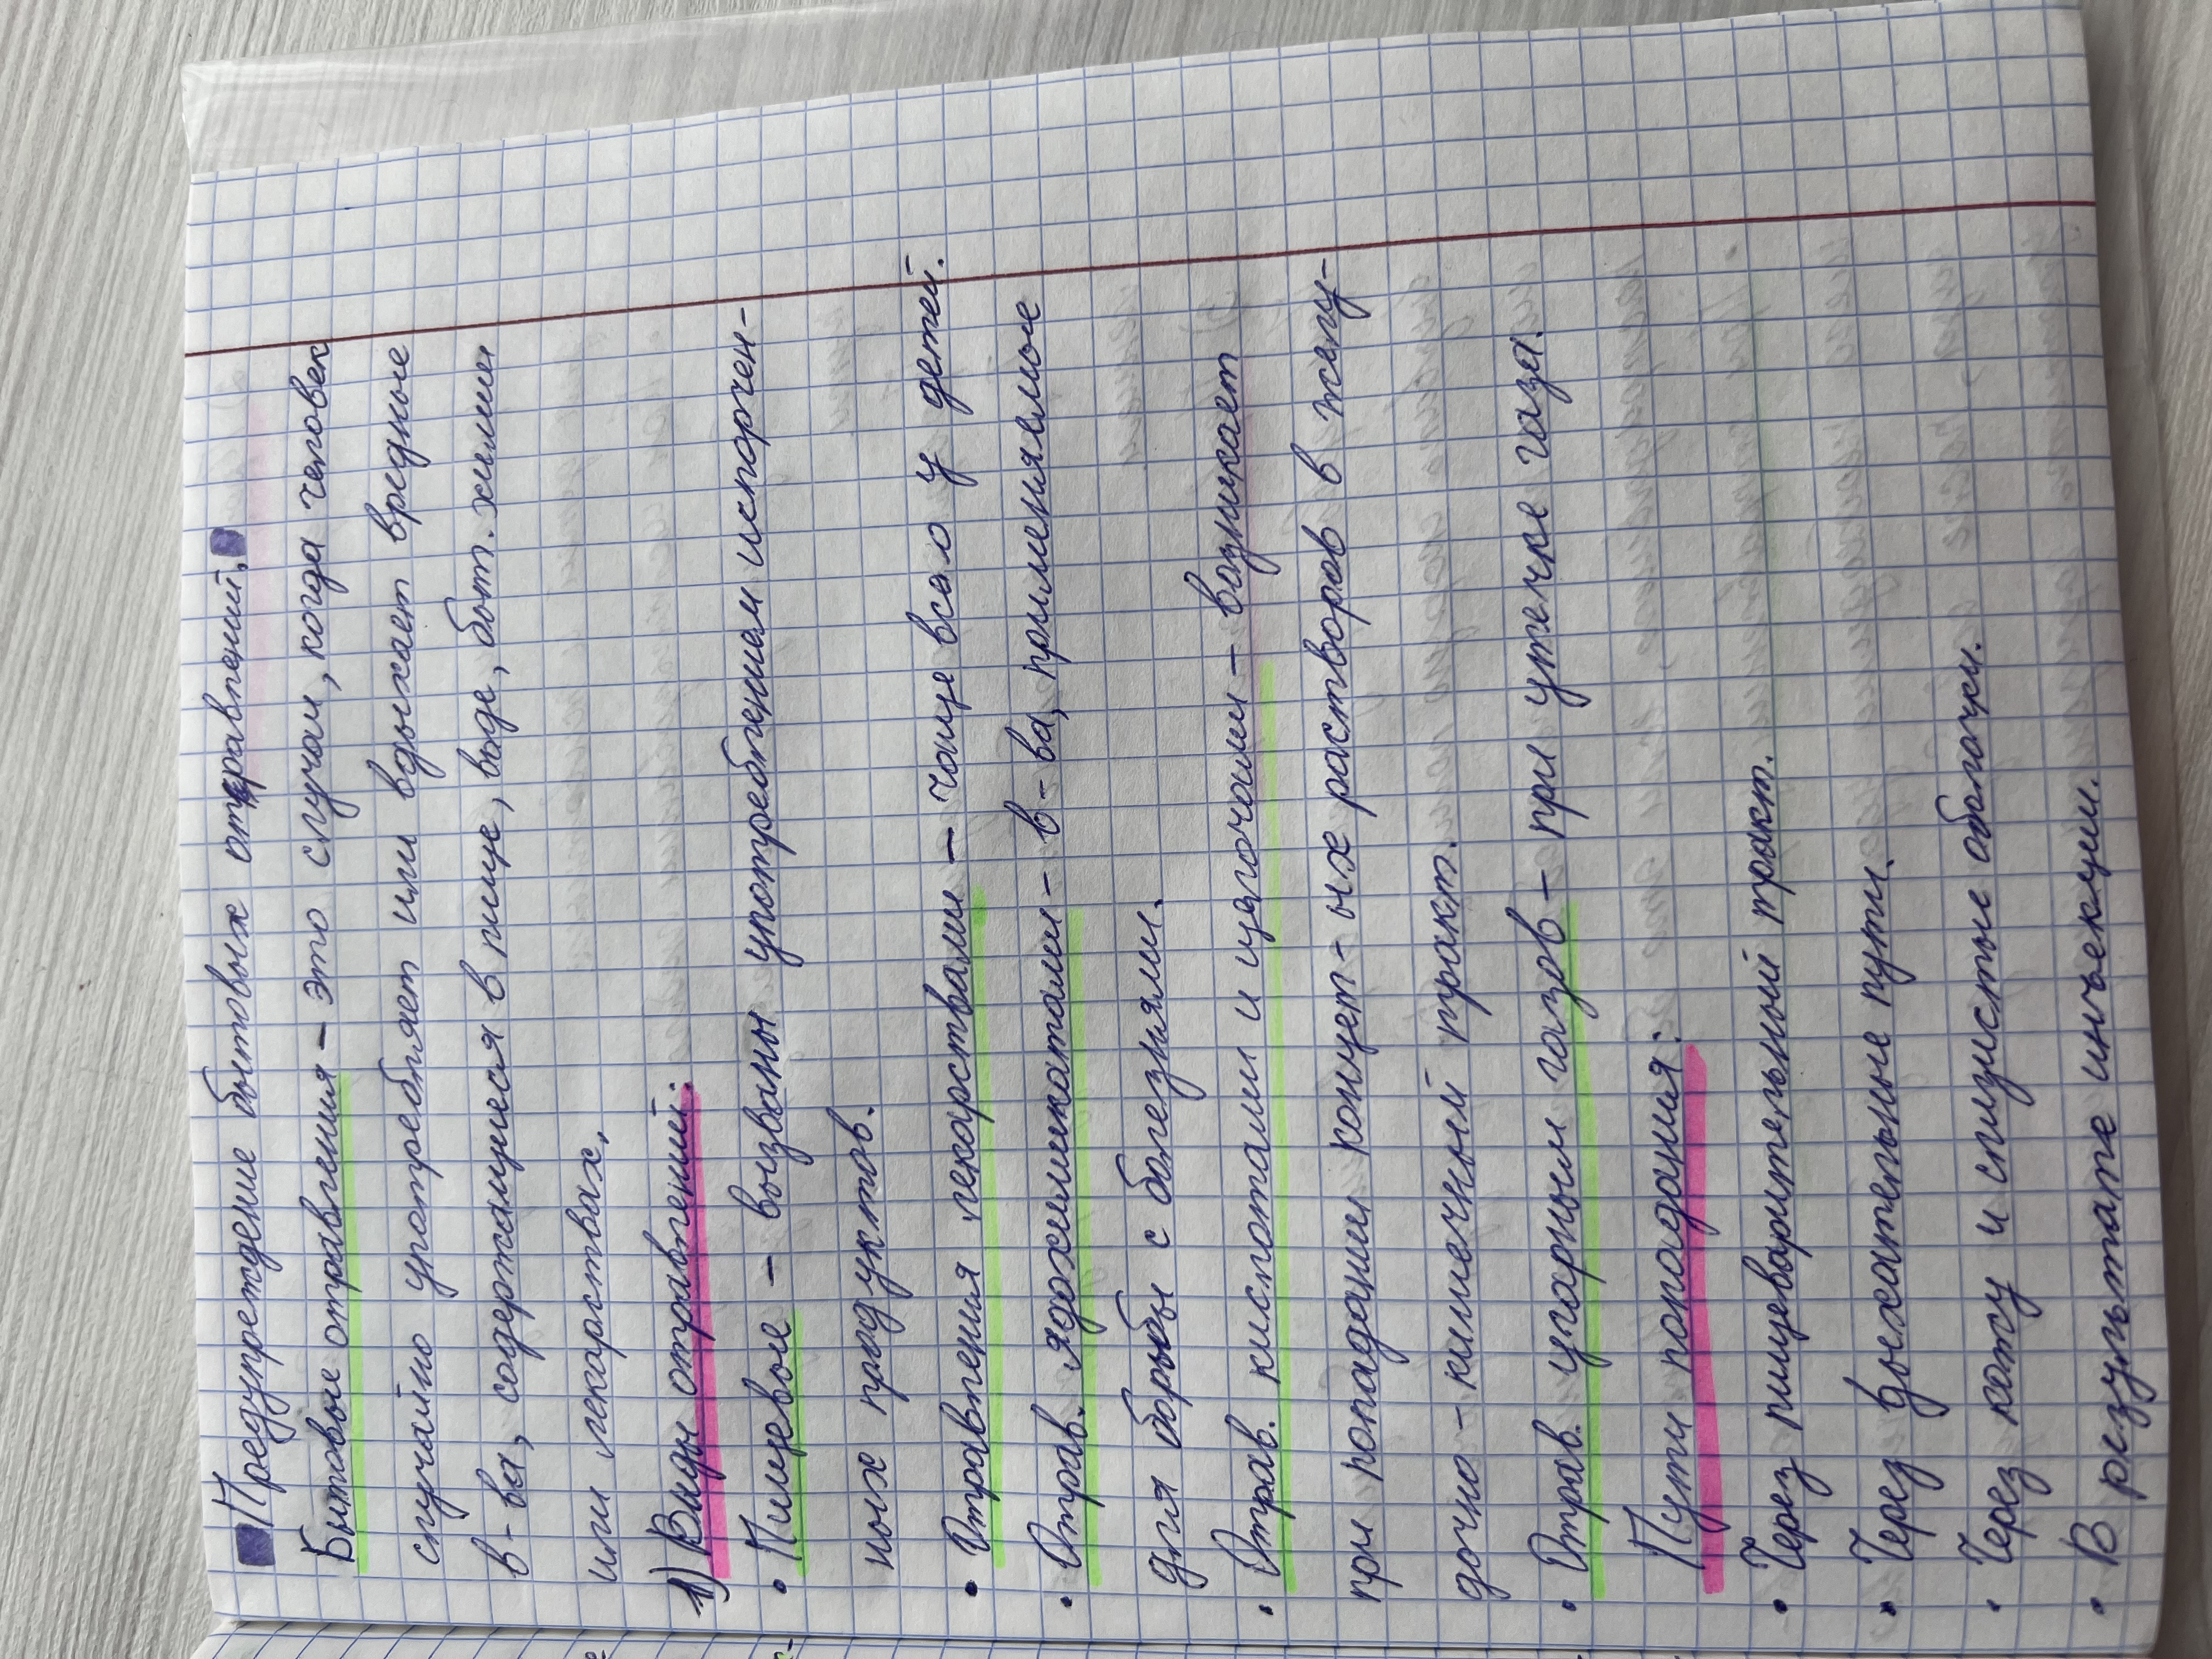 Предупреждение бытовых отравлений.
Бытовые отравления – это случаи, когда человек
случайно употребляет или вдыхает вредные
в-ва, содержащиеся в пище, воде, быт. химии
или лекарствах.
1) Виды отравлений:
• Пищевые – вызваны употреблением испорчен-
ных продуктов.
• Отравления лекарствами – чаще всего у детей.
• Отрав. ядохимикатами – в-ва, применяемые
для борьбы с болезнями.
• Отрав. кислотами и щелочами – возникает
при попадании концет-ых растворов в желу-
дочно-кишечный тракт.
• Отрав. угарным газов – при утечке газа.
Пути попадания:
• Через пищеварительный тракт.
• Через дыхательные пути.
• Через кожу и слизистые оболочки.
• В результате инъекции.